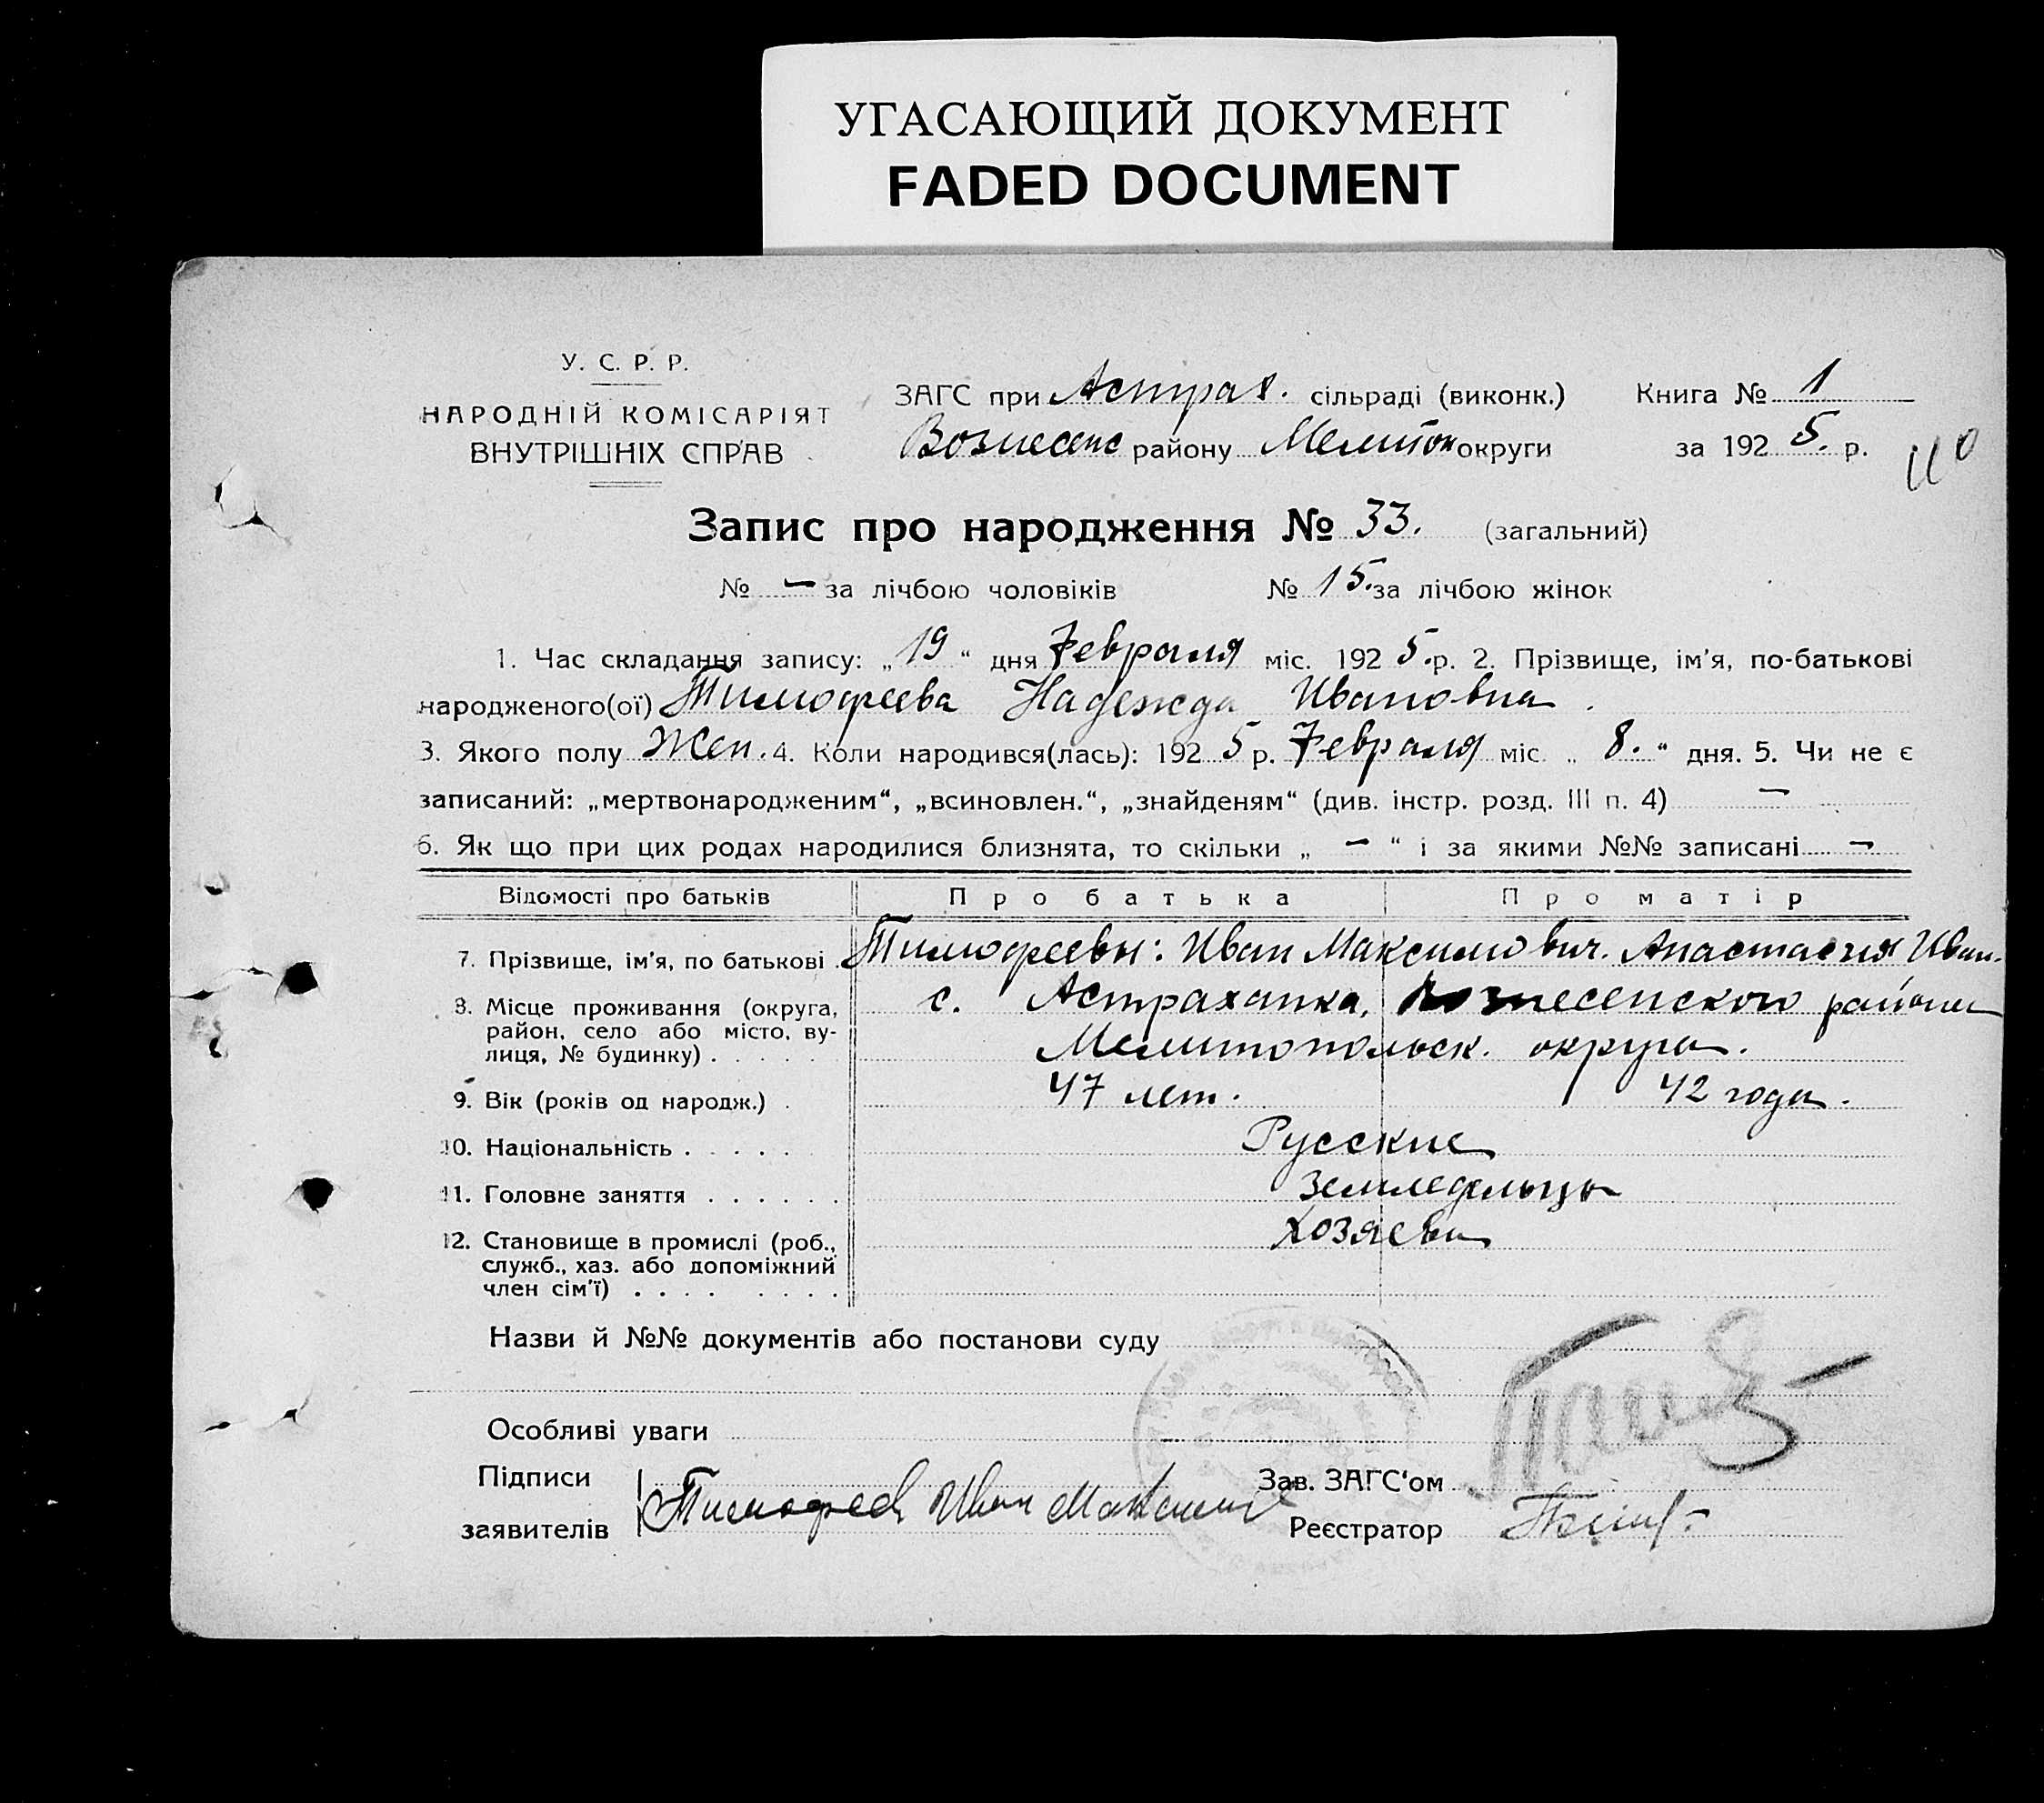 УГАСАЮЩИЙ ДОКУМЕНТ
FADED DOCUMENT
У. С. Р. Р.
НАРОДНІЙ КОМІСАРІЯТ
ВНУТРІШНІХ СПРАВ
ЗАГС при Астрах. сільраді (виконк.)
Книга № 1
Вознесенс району Мелитоп округи
за 192 5. р.
110
Запис про народження № 33. (загальний)
№ — за лічбою чоловіків № 15. за лічбою жінок
1. Час складання запису: „19“ дня Февраля міс. 192 5. р. 2. Прізвище, ім'я, по-батькові
народженого(ої) Тимофеева Надежда Ивановна.
3. Якого полу Жен. 4. Коли народився(лась): 192 5 р. Февраля міс. „ 8. “ дня. 5. Чи не є
записаний: „мертвонародженим“, „всиновлен.“, „знайденям“ (див. інстр. розд. III п. 4) —
6. Як що при цих родах народилися близнята, то скільки „ — “ і за якими №№ записані —
Відомості про батьків Про батька Про матір
7. Прізвище, ім'я, по батькові . Тимофеевы: Иван Максимович. Анастасия Иван.
8. Місце проживання (округа, с. Астраханка, Вознесенского района
район, село або місто, ву-
лиця, № будинку) . . . . . Мелитопольск. округа.
9. Вік (років од народж.) . 47 лет. 42 года.
10. Національність . . . . . Русские
11. Головне заняття . . . . . . Земледельцы
12. Становище в промислі (роб., Хозяева
служб., хаз. або допоміжний
член сім'ї) . . . . . . . .
Назви й №№ документів або постанови суду
Особливі уваги —
Підписи
Зав. ЗАГС'ом
заявителів Тимофеев Иван Максимов
Реєстратор